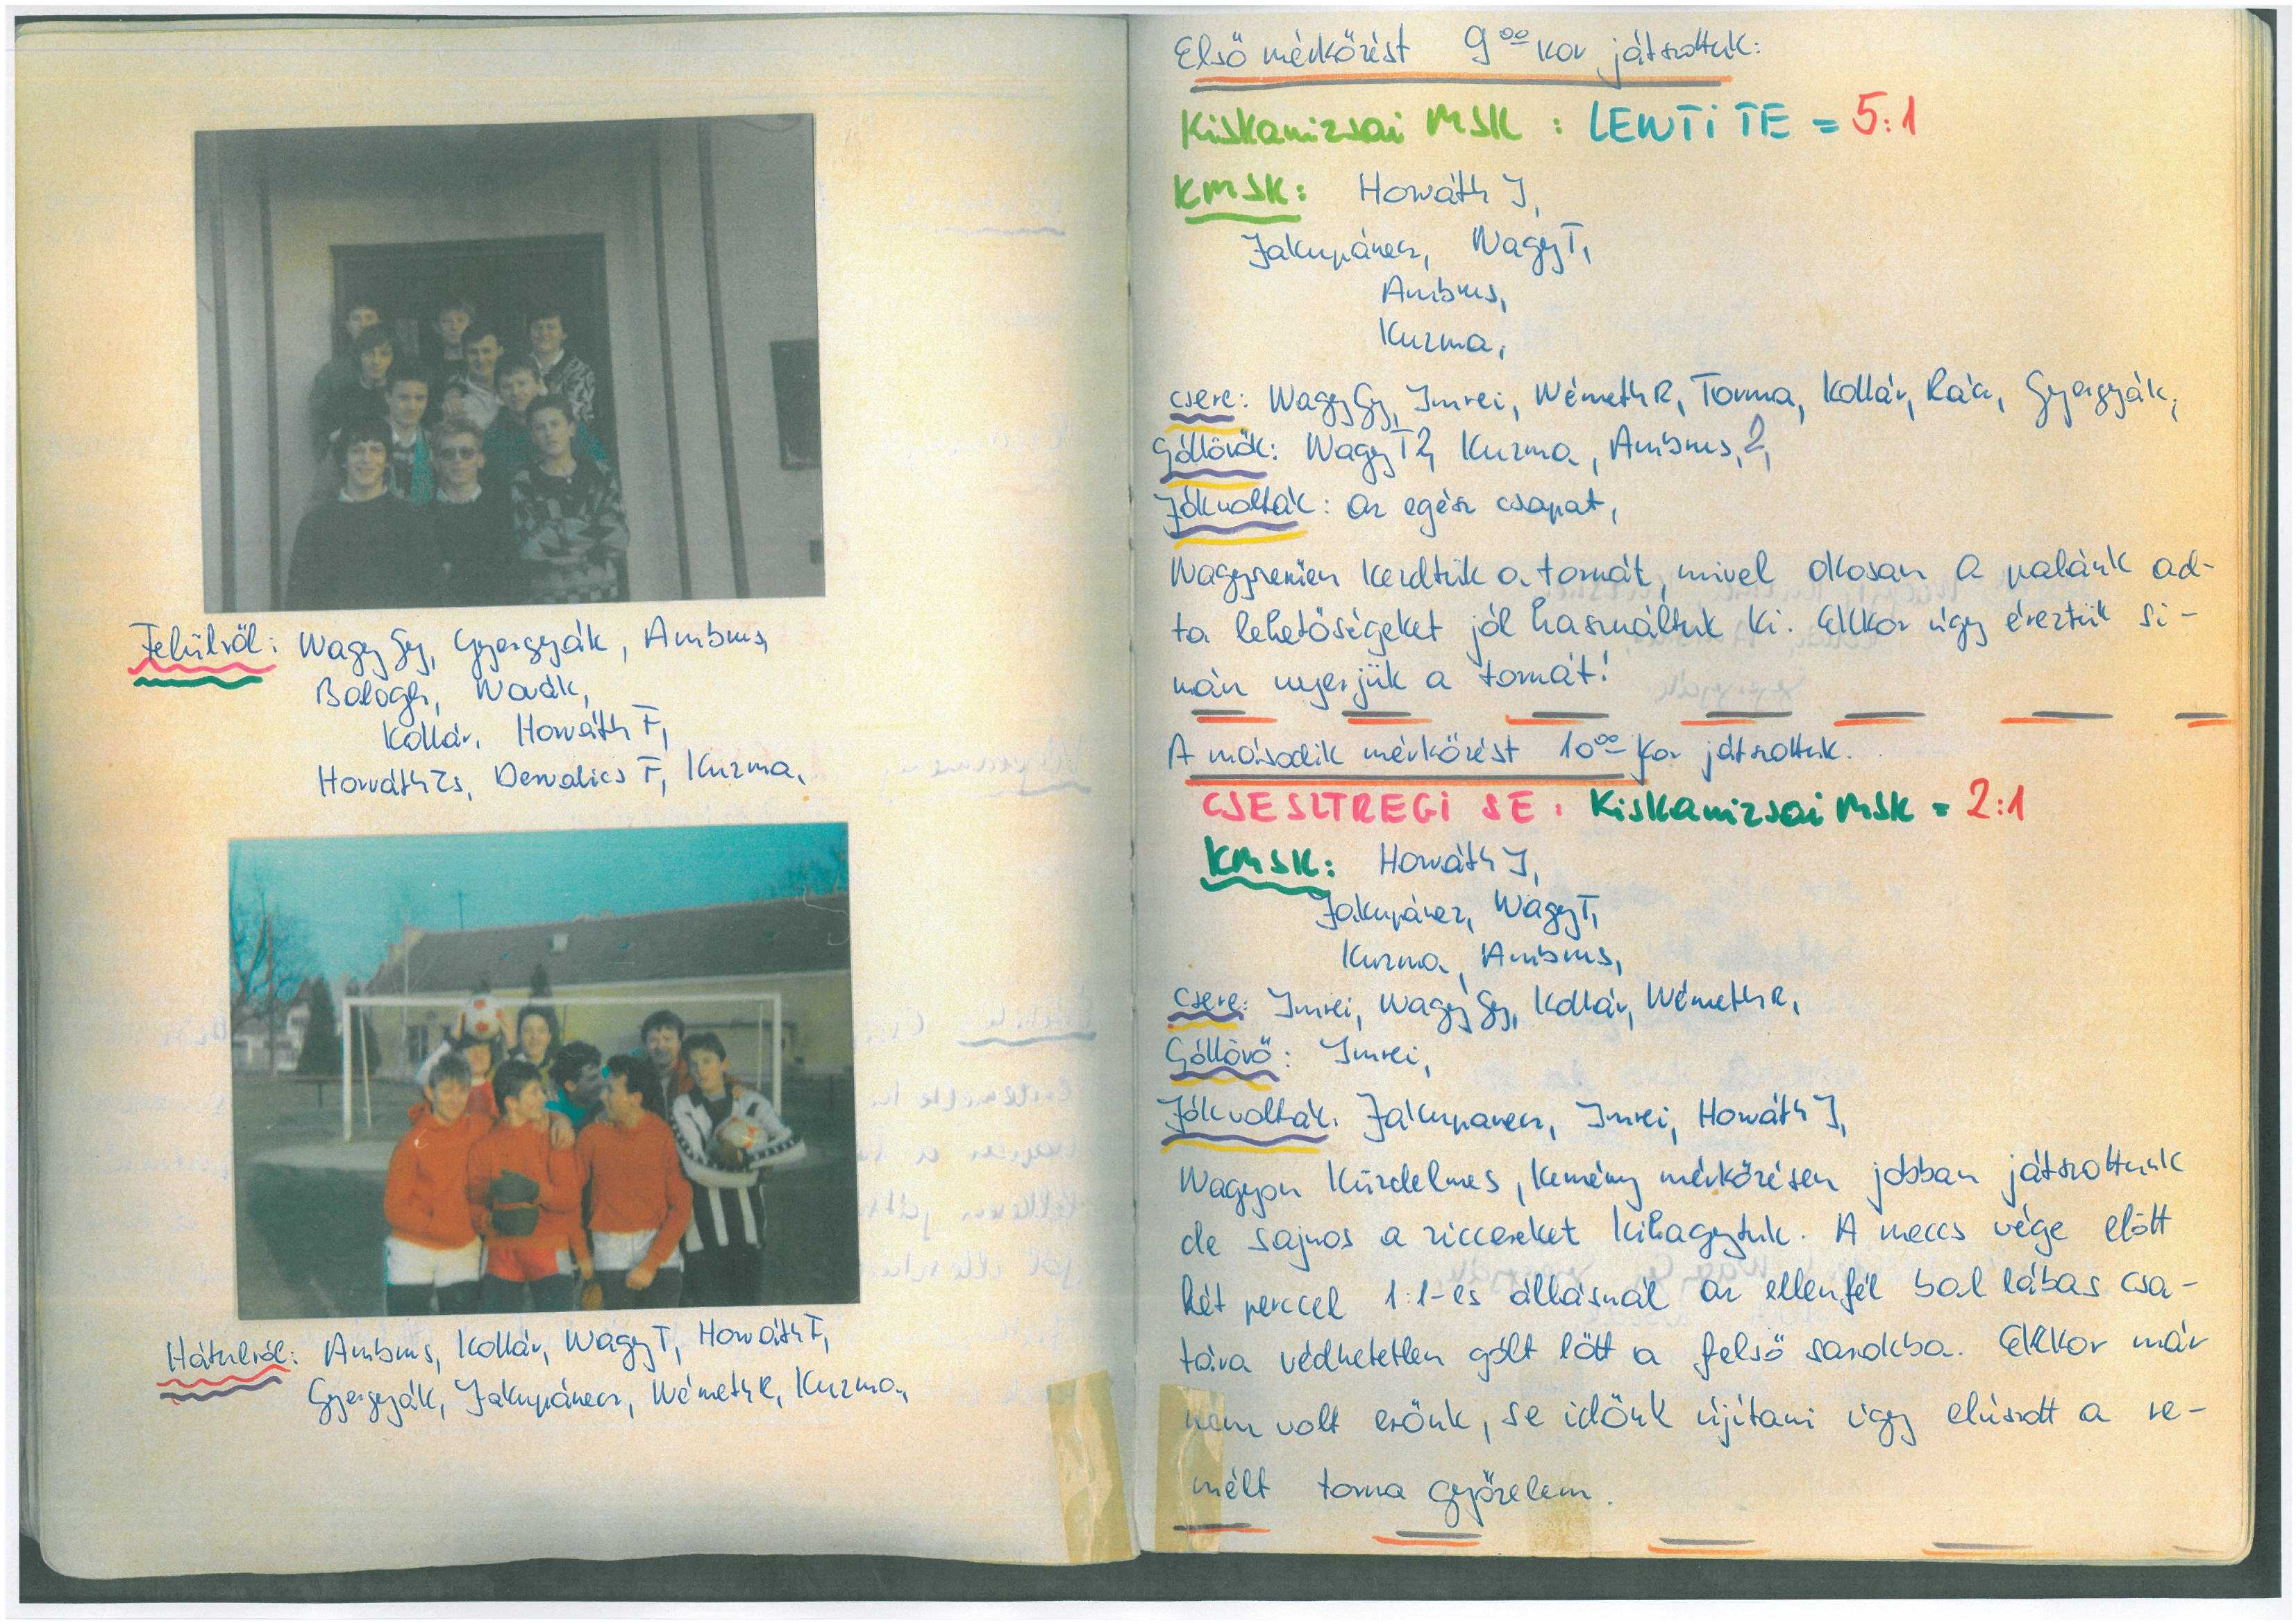 Felülről: Nagy Gy, Gyergyák, Ambrus,
Balogh, Novák,
Kollár, Horváth F,
Horváth Zs, Dervalics F, Kuzma,
Hátulról: Ambrus, Kollár, Nagy T, Horváth F,
Gyergyák, Jakupánecz, Németh R, Kuzma,
Első mérkőzést 9⁰⁰ kor játszottuk:
Kiskanizsai MSK : LENTI TE = 5:1
KMSK: Horváth J,
Jakupánecz, Nagy T,
Ambrus,
Kuzma,
csere: Nagy Gy, Imrei, Németh R, Torma, Kollár, Rácz, Gyergyák,
Góllövők: Nagy T 2, Kuzma, Ambrus, 2,
Jók voltak: az egész csapat,
Nagyszerűen kezdtük a tornát, mivel okosan a palánk ad-
ta lehetőségeket jól használtuk ki. Ekkor úgy éreztük si-
mán nyerjük a tornát!
A második mérkőzést 10⁰⁰ kor játszottuk.
CSESZTREGI SE : Kiskanizsai MSK = 2:1
KMSK: Horváth J,
Jakupánecz, Nagy T,
Kuzma, Ambrus,
Csere: Imrei, Nagy Gy, Kollár, Németh R,
Góllövő: Imrei,
Jók voltak: Jakupanecz, Imrei, Horváth J,
Nagyon küzdelmes, kemény mérkőzésen jobban játszottunk
de sajnos a ziccereket kihagytuk. A meccs vége előtt
két perccel 1:1-es állásnál az ellenfél bal lábas csa-
tára védhetetlen gólt lőtt a felső sarokba. Ekkor már
nem volt erőnk, se időnk újítani úgy elúszott a re-
mélt torna győzelem.